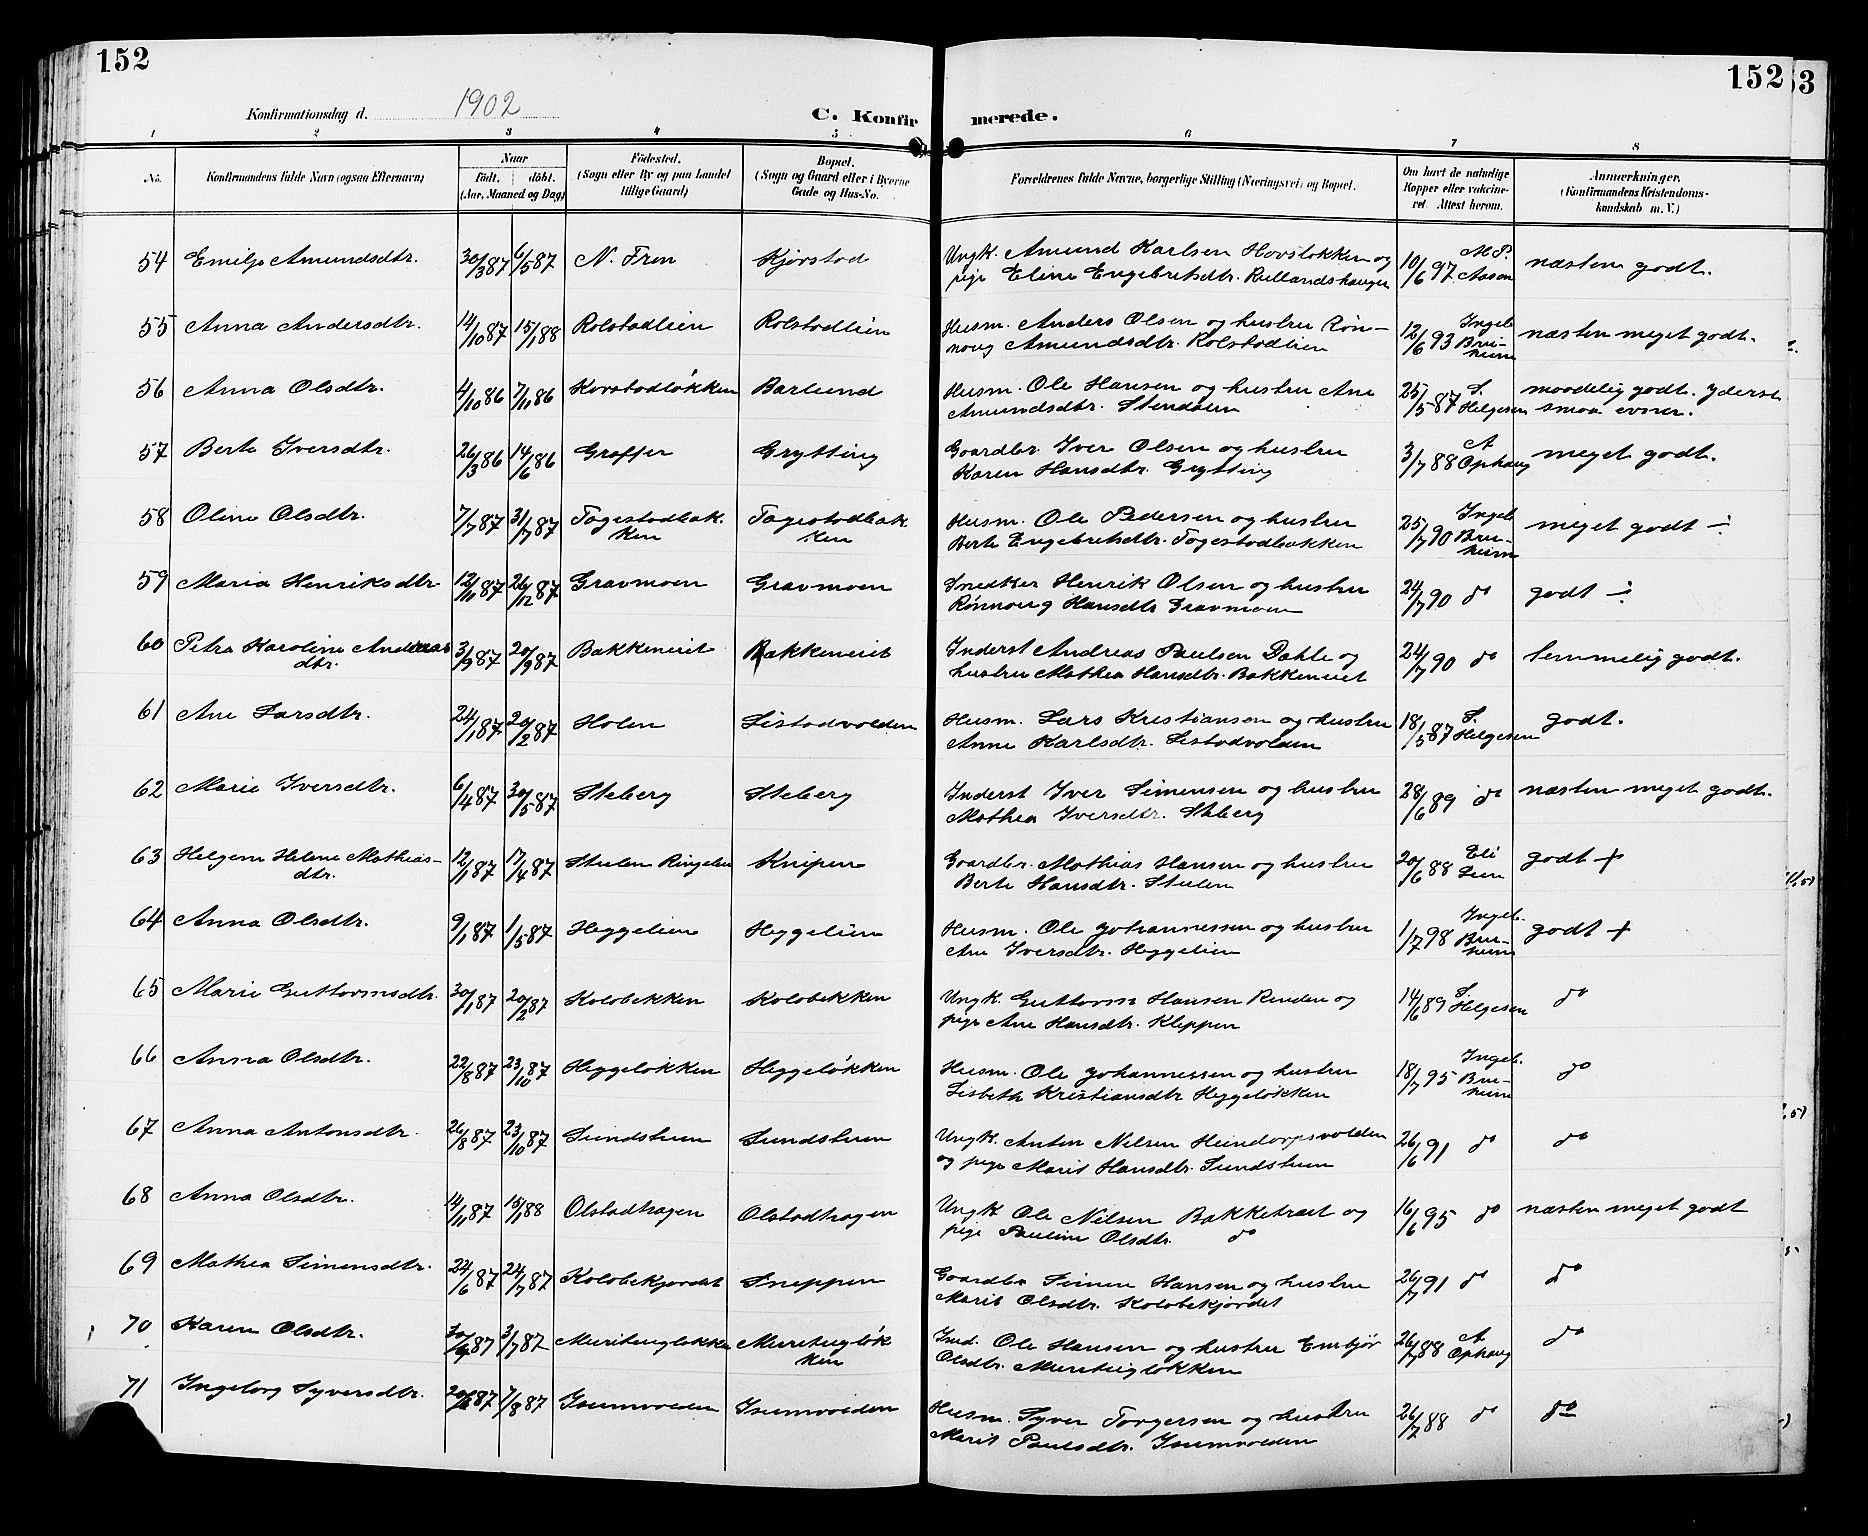 152 152 53
Konfirmationsdag d. 1902 C. Konfirmerede.
1 2 3 4 5 6 7 8
No. Konfirmandens fulde Navn (ogsaa Efternavn) Naar Födt. döbt. (Aar, Maaned og Dag) Födested. (Sogn eller By og paa Landet tillige Gaard) Bopæl. (Sogn og Gaard eller i Byerne Gade og Hus-No. Forældrenes fulde Navne, borgerlige Stilling (Næringsvei) og Bopæl. Om havt de naturlige Kopper eller vaccineret. Attest herom. Anmærkninger. (Konfirmandens Kristendomskundskab m. V.)
54 Emilje Amundsdtr. 30/3 87 6/5 87 N. Fron Kjørstad Ungk. Amund Karlsen Hovsløkken og
pige Eline Engebretsdtr. Rullandshaugen 10/6 97 M. P. Aasen næsten godt.
55 Anna Andersdtr. 14/10 87 15/1 88 Rolstadlien Rolstadlien Husm. Anders Olsen og hustru Røn-
noug Amundsdtr. Rolstadlien 12/6 93 Ingeb. Bruheim næsten meget godt.
56 Anna Olsdtr. 4/10 86 7/11 86 Korstadløkken Barlund Husm. Ole Hansen og hustru Ane
Amundsdtr. Stendalen 25/5 87 S. Helgesen maadelig godt. Yderst
smaa evner.
57 Berte Iversdtr. 26/3 86 14/6 86 Graffer Grytting Gaardbr. Iver Olsen og hustru
Karen Hansdtr. Grytting 3/7 88 A Ophaug meget godt.
58 Oline Olsdtr. 7/7 87 31/7 87 Tagestadbak-
ken Tagestadbak
ken Husm. Ole Pedersen og hustru
Berte Engebretsdtr. Tagestadbakken 25/7 90 Ingeb. Bruheim meget godt ÷
59 Maria Henriksdtr 12/11 87 26/12 87 Gravmoen Gravmoen Snedker Henrik Olsen og hustru
Rønnoug Hansdtr Gravmoen 24/7 90 do godt ÷
60 Petra Karoline Andreas
dtr. 3/9 87 20/9 87 Bakkeneiet Bakkeneiet Inderst Andreas Paulsen Dahle og
hustru Mathea Hansdtr. Bakkeneiet 24/7 90 do temmelig godt.
61 Ane Larsdtr. 24/1 87 20/2 87 Holen Listadvolden Husm. Lars Kristiansen og hustru
Anne Karlsdtr. Listadvolden 18/5 87 S. Helgesen godt.
62 Marie Iversdtr. 6/4 87 30/5 87 Steberg Steberg Inderst Iver Simensen og hustru
Mathea Iversdtr. Steberg 28/6 89 do næsten meget godt.
63 Helgine Helene Mathias-
dtr. 12/1 87 17/4 87 Stulen Ringelien Knipen Gaardbr. Mathias Hansen og hustru
Berte Hansdtr. Stulen 20/6 88 Eli Lien godt +
64 Anna Olsdtr. 9/1 87 1/5 87 Heggelien Heggelien Husm. Ole Johannessen og hustru
Ane Iversdtr. Heggelien 1/7 98 Ingeb. Bruheim godt +
65 Marie Guttormsdtr. 30/1 87 20/2 87 Kolobekken Kolobekken Ungk. Guttorm Hansen Rinden og
pige Ane Hansdtr. Kleppen 14/6 89 S. Helgesen do
66 Anna Olsdtr. 22/8 87 23/10 87 Heggeløkken Heggeløkken Husm. Ole Johannessen og hustru
Lisbeth Kristiansdtr Heggeløkken 18/7 95 Ingeb. Bruheim do
67 Anna Antonsdtr. 26/8 87 23/10 87 Sundstuen Sundstuen Ungk. Anton Nilsen Heindorpsvolden
og pige Marit Hansdtr. Sundstuen 26/6 91 do do
68 Anna Olsdtr. 14/11 87 15/1 88 Olstadhagen Olstadhagen Ungk Ole Nilsen Bakketræet og
pige Pauline Olsdtr. do 16/6 95 do næsten meget godt
69 Mathea Simensdtr. 24/6 87 24/7 87 Kolobekjordet Sneppen Gaardbr Simen Hansen og hustru
Marit Olsdtr. Kolobekjordet 26/7 91 do do
70 Karen Olsdtr. 87 3/7 87 Muriteigløkken Muriteigløk
ken Ind. Ole Hansen og hustru Embjør
Olsdtr. Muriteigløkken 26/7 88 A Ophaug do
71 Ingeborg Syversdtr. 87 7/8 87 Isumvolden Isumvolden Husm. Syver Torgersen og hustru
Marit Paulsdtr. Isumvolden 26/7 88 do do